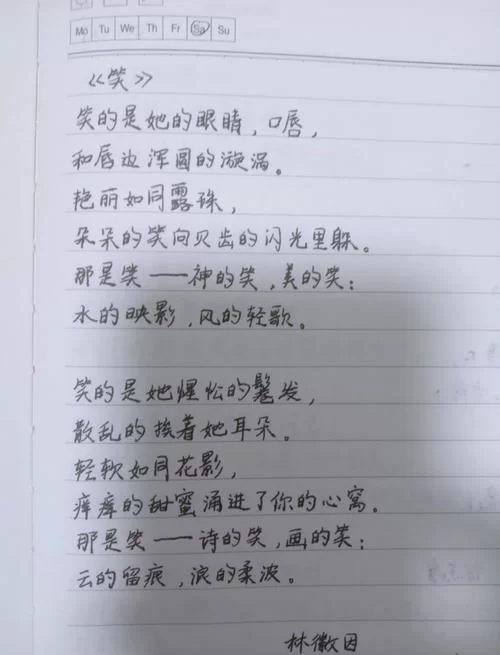 Mo Tu We Th Fr Sa Su
《笑》
笑的是她的眼睛，口唇，
和唇边浑圆的漩涡。
艳丽如同露珠，
朵朵的笑向贝齿的闪光里躲。
那是笑——神的笑，美的笑；
水的映影，风的轻歌。
笑的是她惺松的鬈发，
散乱的挨着她耳朵。
轻软如同花影，
痒痒的甜蜜涌进了你的心窝。
那是笑——诗的笑，画的笑；
云的留痕，浪的柔波。
林徽因